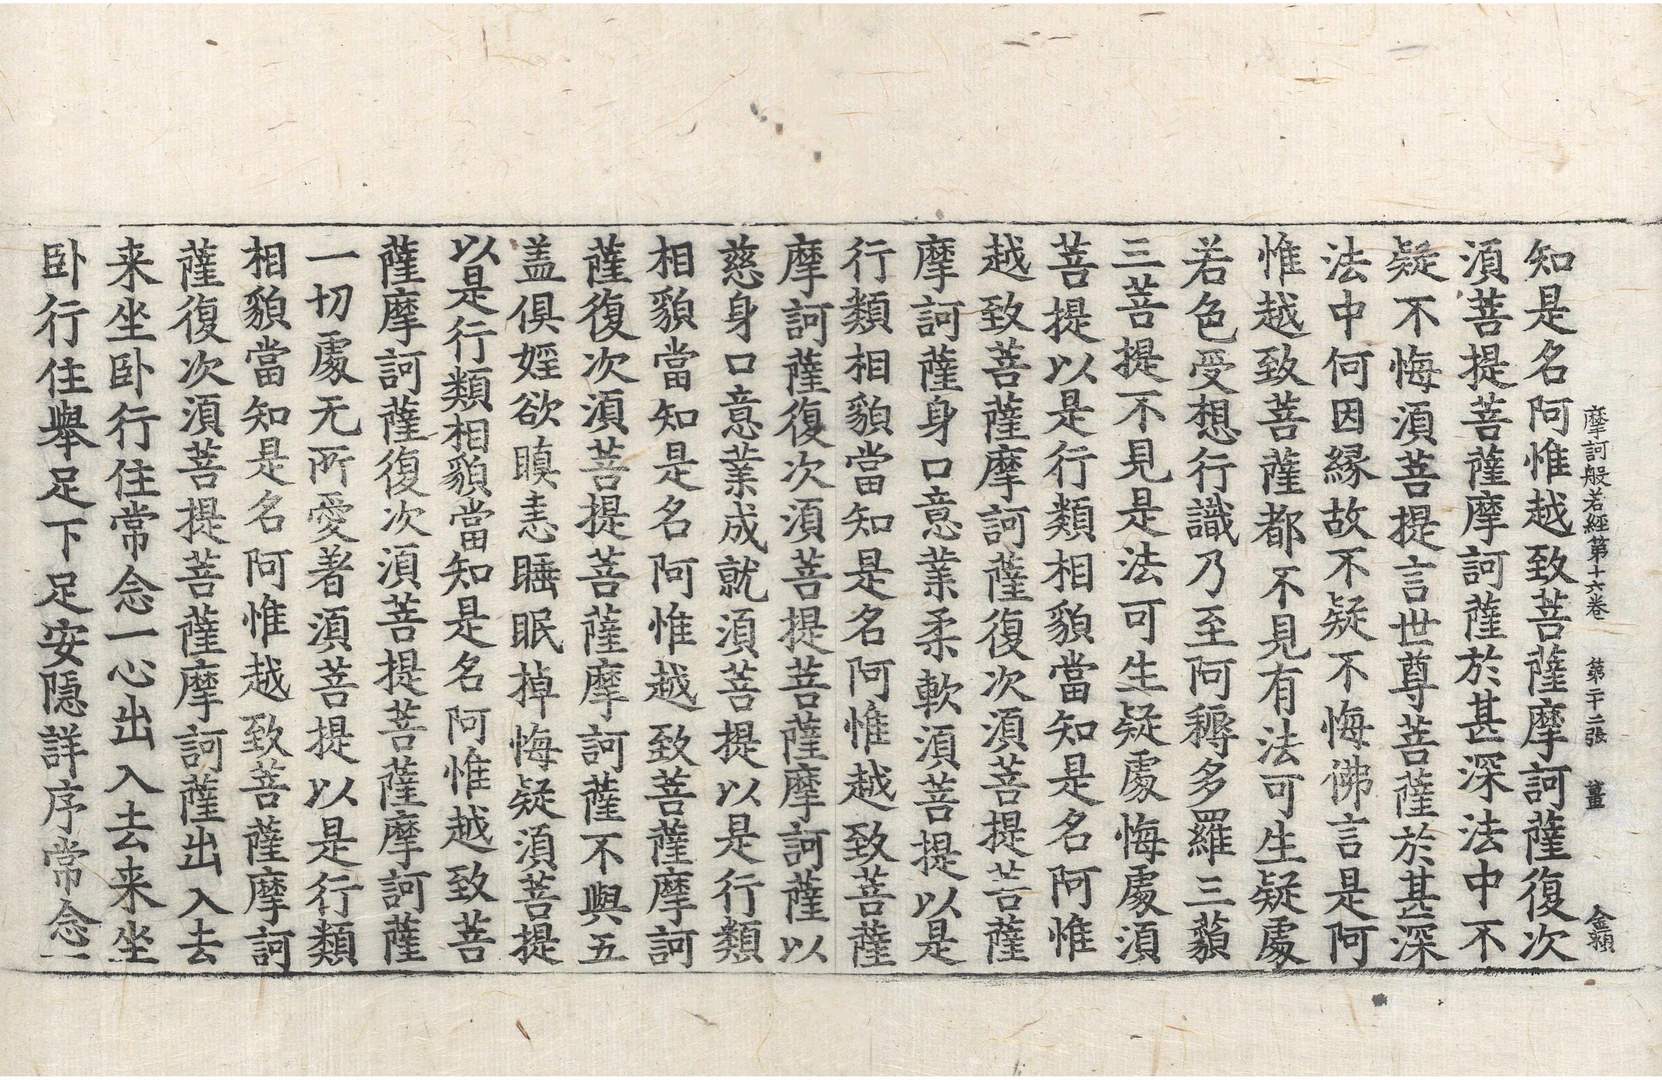 摩訶般若經第十六卷　第二十二張　薑　金穎
知是名阿惟越致菩薩摩訶薩復次
湏菩提菩薩摩訶薩於甚深法中不
疑不悔湏菩提言世尊菩薩於甚深
法中何因緣故不疑不悔佛言是阿
惟越致菩薩都不見有法可生疑處
若色受想行識乃至阿耨多羅三藐
三菩提不見是法可生疑處悔處湏
菩提以是行類相貌當知是名阿惟
越致菩薩摩訶薩復次湏菩提菩薩
摩訶薩身口意業柔軟湏菩提以是
行類相貌當知是名阿惟越致菩薩
摩訶薩復次湏菩提菩薩摩訶薩以
慈身口意業成就湏菩提以是行類
相貌當知是名阿惟越致菩薩摩訶
薩復次湏菩提菩薩摩訶薩不與五
盖俱婬欲瞋恚睡眠掉悔疑湏菩提
以是行類相貌當知是名阿惟越致菩
薩摩訶薩復次湏菩提菩薩摩訶薩
一切處无所愛著湏菩提以是行類
相貌當知是名阿惟越致菩薩摩訶
薩復次湏菩提菩薩摩訶薩出入去
来坐卧行住常念一心出入去来坐
卧行住舉足下足安隱詳序常念一